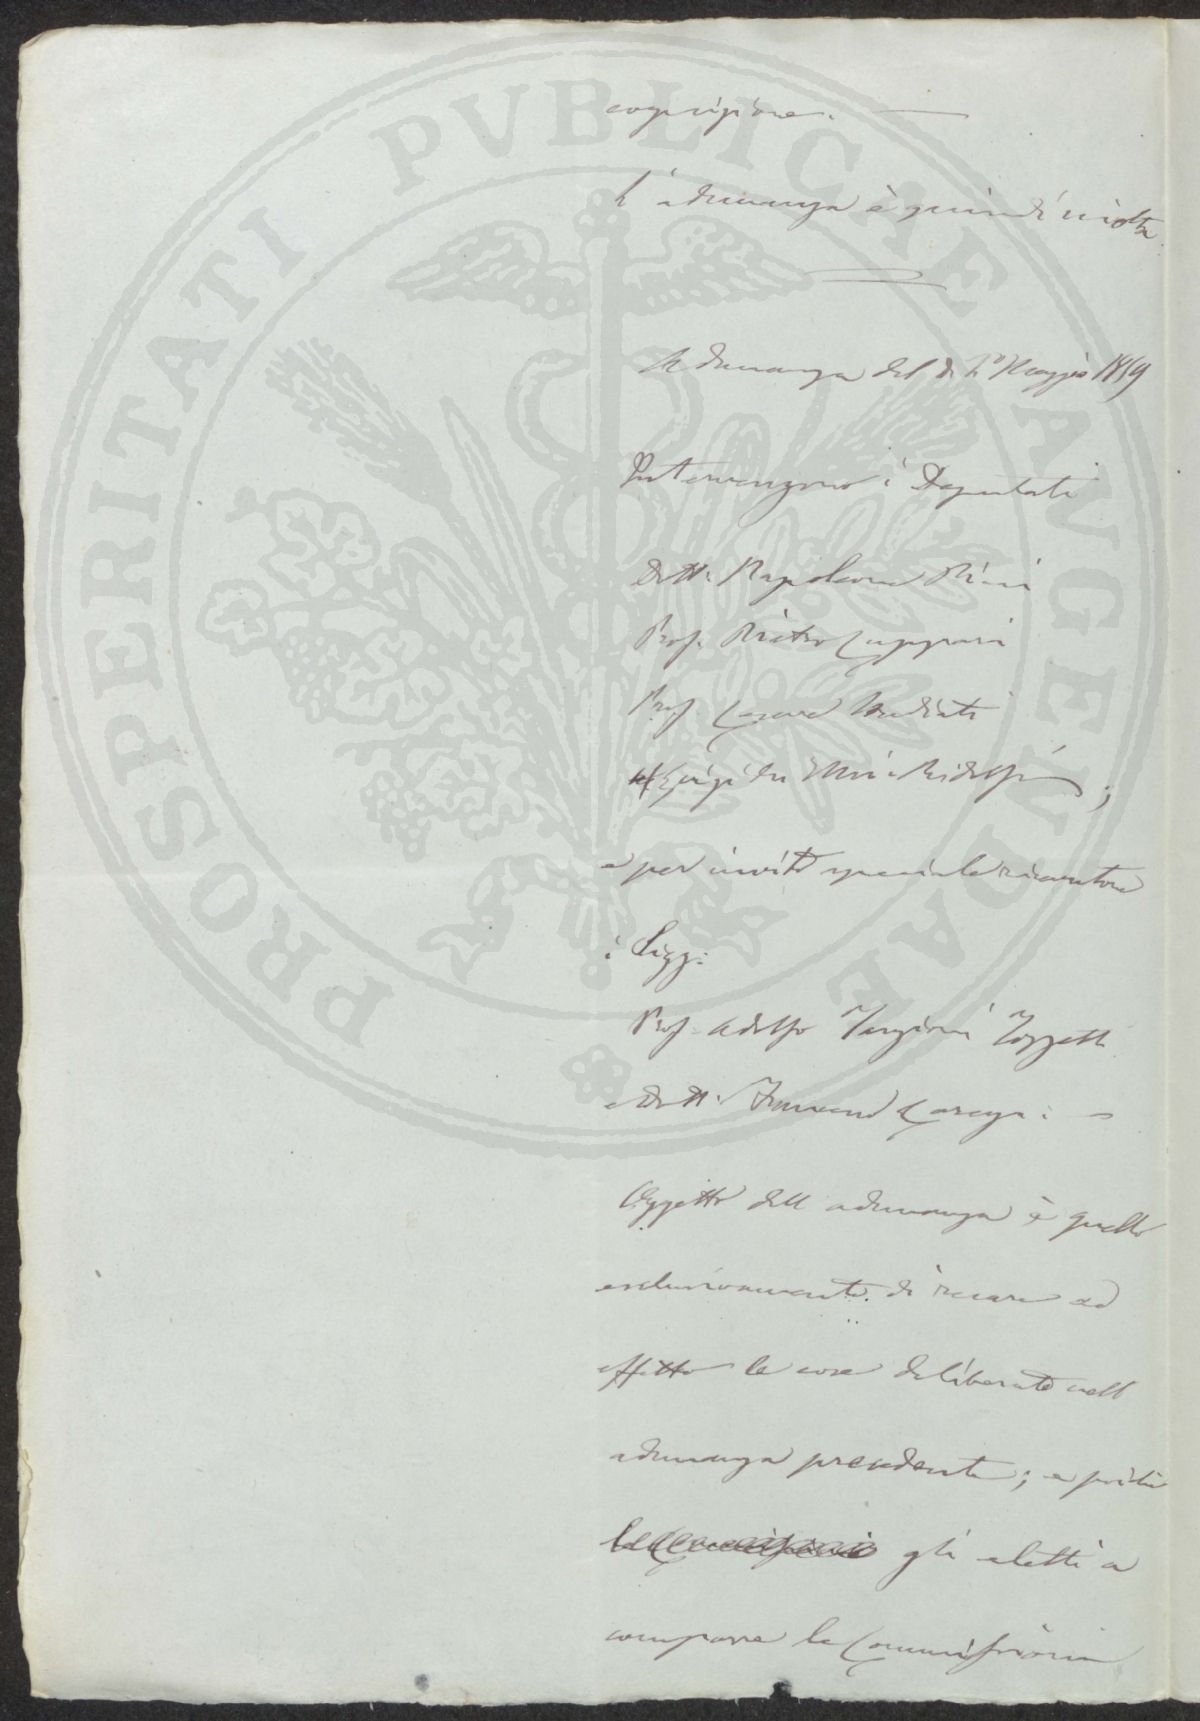 cognizione.
L'adunanza è quindi sciolta
Adunanza del dì 1º Maggio 1859
Intervengono i Deputati
Dott. Napoleone Pini
Prof. Pietro Cuppari
Prof. Cesare Studiati
Luigi Ridolfi;
e per invito speciale ricevutone
i Sigg:
Prof. Adolfo Targioni Tozzetti
e Dott. Francesco Carega:
Oggetto dell'adunanza è quello
esclusivamente di recare ad
effetto le cose deliberate nell'
adunanza precedente; e poichè
gli eletti a
comporre le Commissioni
PROSPERITATI PVBLICAE AVGENDAE